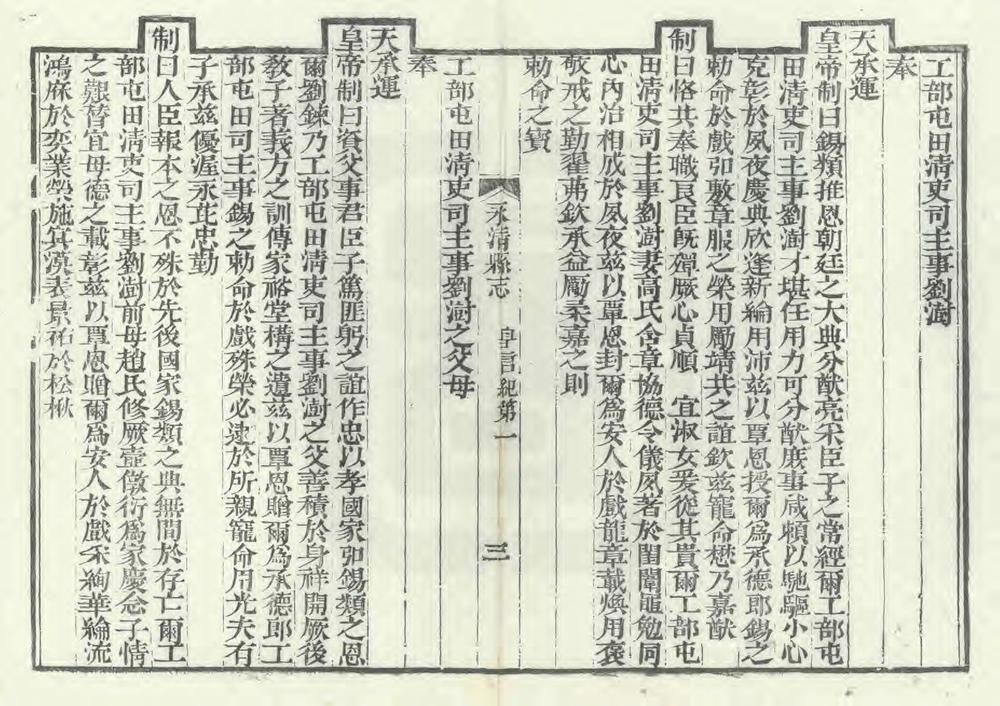 工部屯田清吏司主事劉澍
奉
天承運
皇帝制曰錫類推恩朝廷之大典分猷亮采臣子之常經爾工部屯
田清吏司主事劉澍才堪任用力可分猷庶事咸賴以馳驅小心
克彰於夙夜慶典欣逢新綸用沛茲以覃恩授爾爲承德郎錫之
勅命於戲弘敷章服之榮用勵靖共之誼欽茲寵命懋乃嘉猷
制曰恪共奉職良臣旣殫厥心貞順 宜淑女爰從其貴爾工部屯
田清吏司主事劉澍妻高氏含章協德令儀夙著於閨闈黽勉同
心內治相成於夙夜茲以覃恩封爾爲安人於戲龍章載煥用褒
敬戒之勤翟茀欽承益勵柔嘉之則
勅命之寶
永清縣志 皇言紀第一 三
工部屯田清吏司主事劉澍之父母
奉
天承運
皇帝制曰資父事君臣子篤匪躬之誼作忠以孝國家弘錫類之恩
爾劉鍊乃工部屯田清吏司主事劉澍之父善積於身祥開厥後
敎子著義方之訓傳家裕堂構之遺茲以覃恩贈爾爲承德郎工
部屯田司主事錫之勅命於戲殊榮必逮於所親寵命用光夫有
子承茲優渥永茁忠勤
制曰人臣報本之恩不殊於先後國家錫類之典無間於存亡爾工
部屯田清吏司主事劉澍前母趙氏修厥壼儆衍爲家慶念子情
之艱瘏宜母德之載彰茲以覃恩贈爾爲安人於戲采絢華綸流
鴻庥於奕業榮施窀漠表景祐於松楸